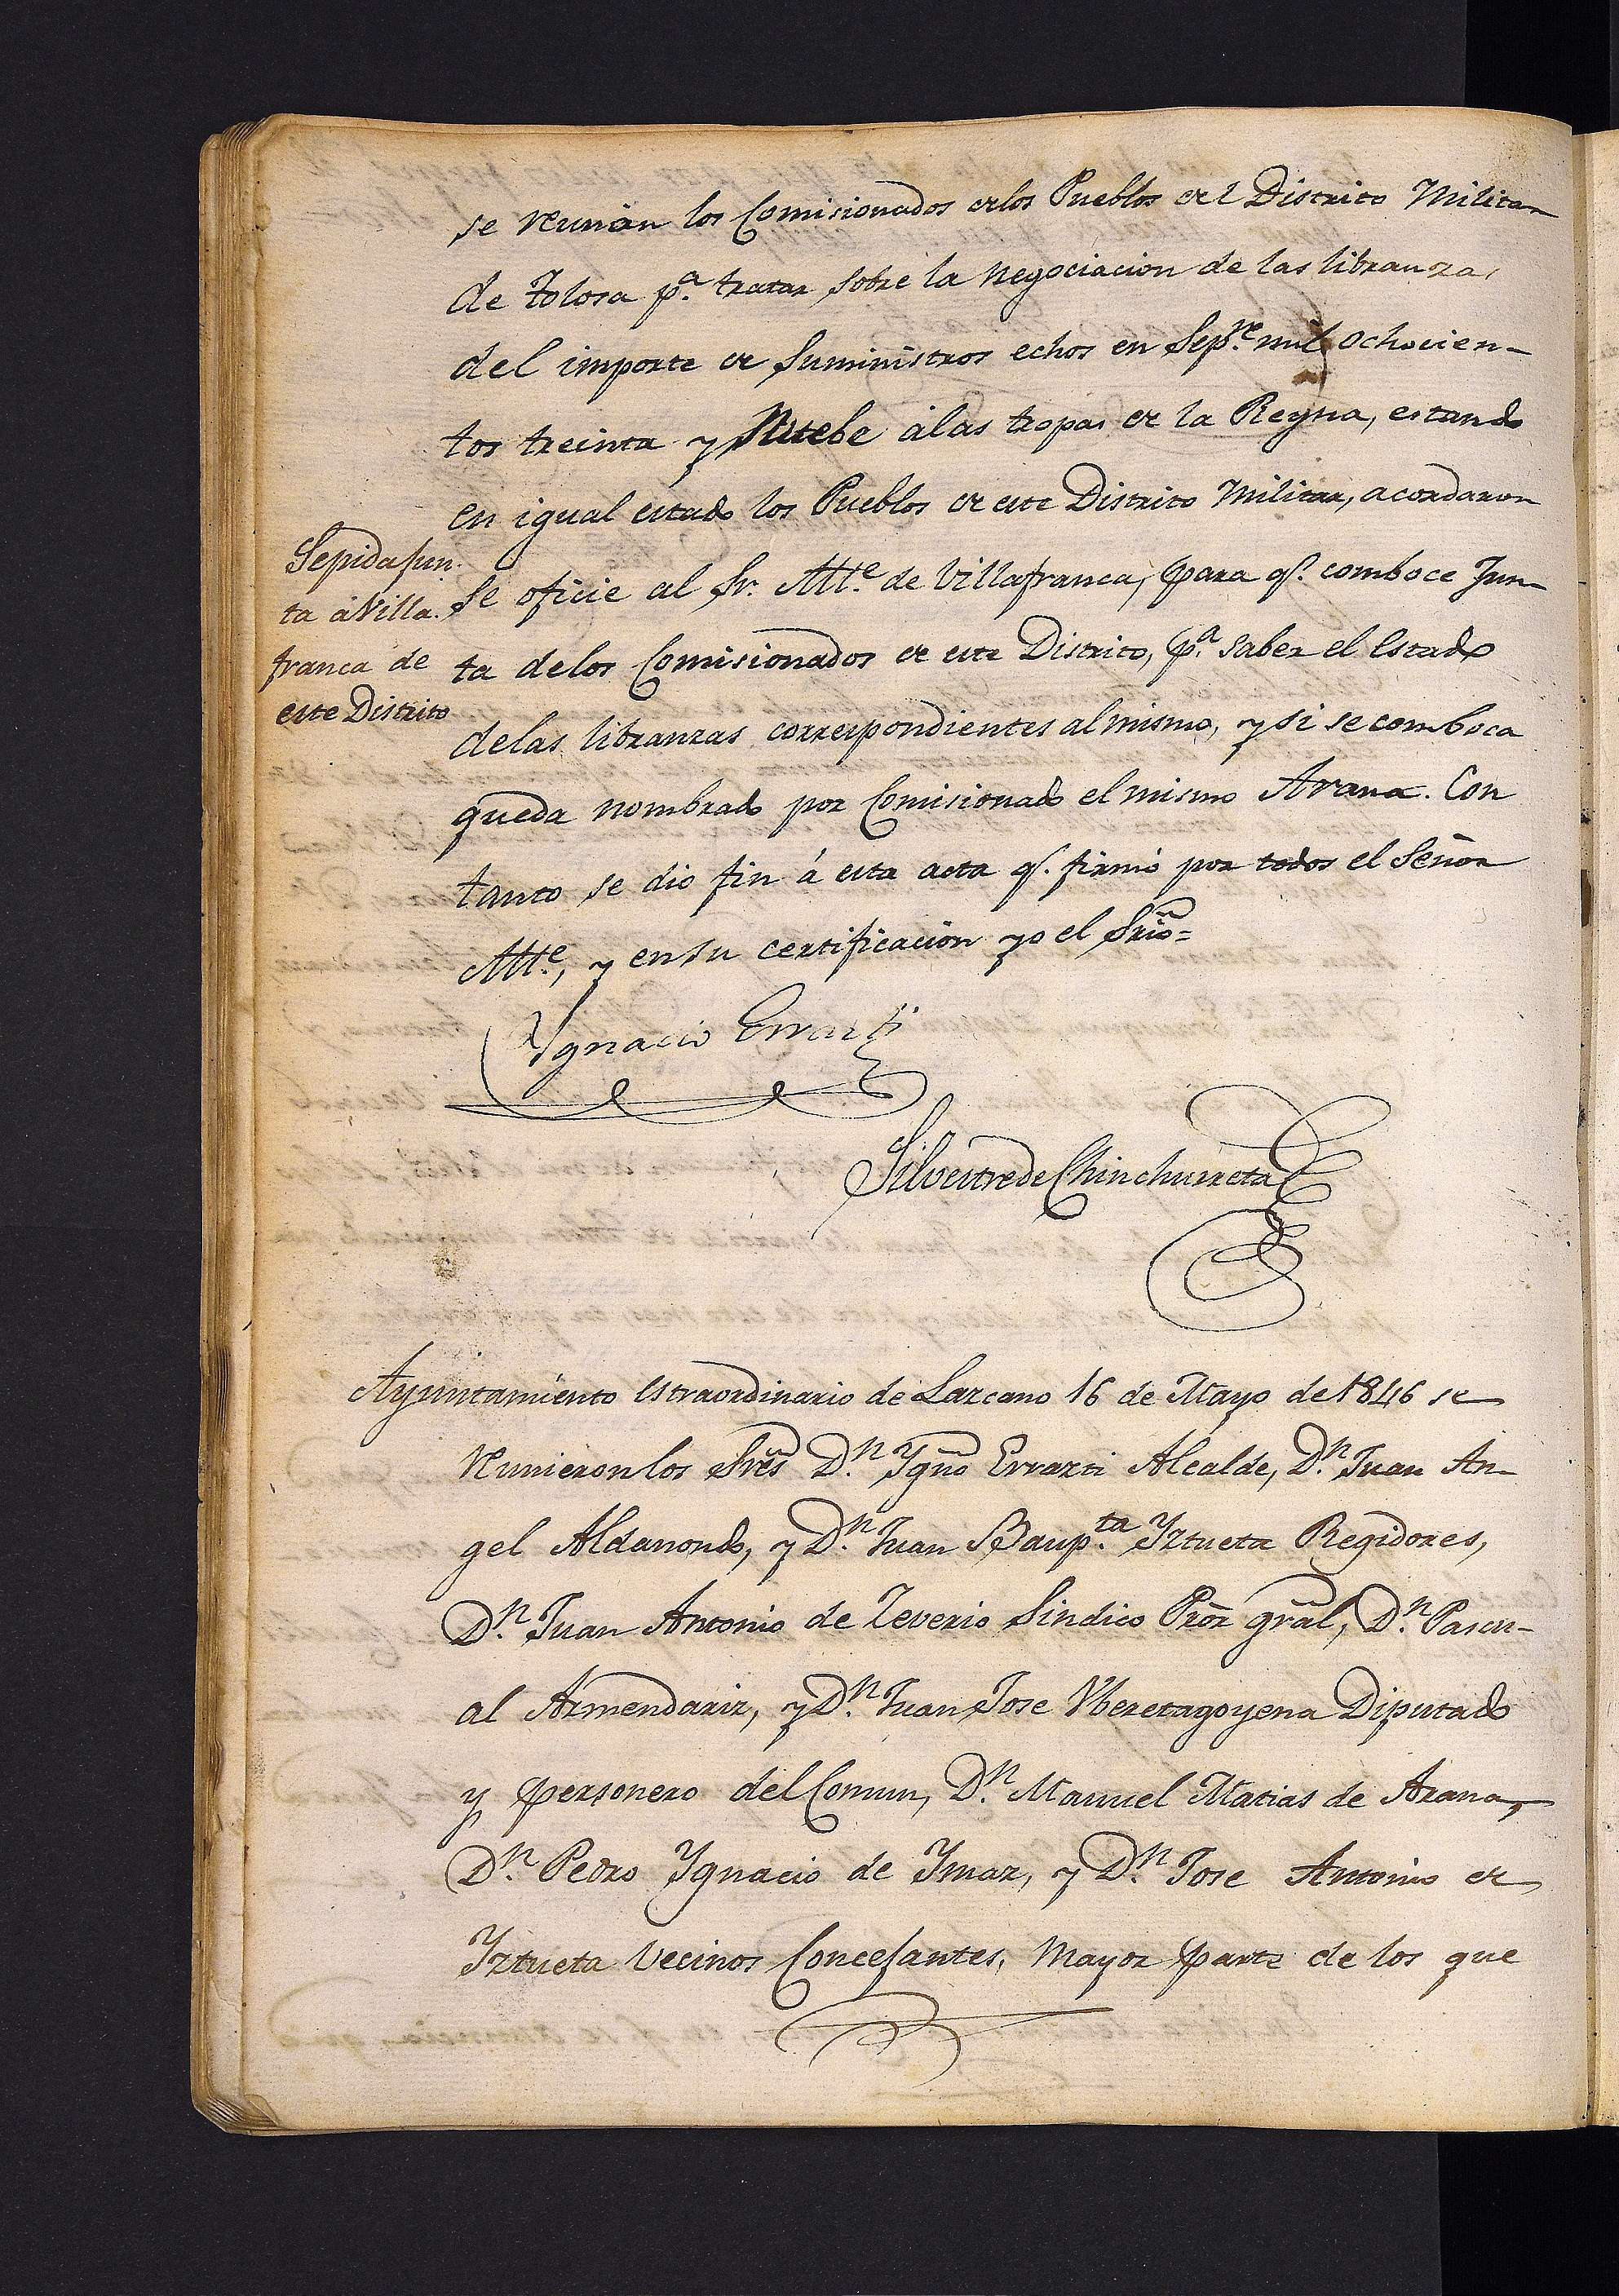 se reunan los Comisionados delos Pueblos del Distrito Militar
de Tolosa pª. tratar sobre la negociacion de las libranzas
del importe de Suministros echos en Sepre. mil ochocien-
tos treinta y Nuebe álas tropas de la Reyna, estando
en igual estado los Pueblos de este Distrito Militar, acordaron
Sepida Jun-
ta áVilla-
franca de
este Distrito
se oficie al Sr. Alte. de Villafranca, para q. comboce Jun-
ta delos Comisionados de este Distrito, pª. saber el Estado
delas libranzas correspondientes almismo, y si se comboca
queda nombrado por Comisionado el mismo Arana. Con
tanto se dio fin á esta acta q. firmó por todos el Señor
Alte., y ensu certificacion yo el Srio=
Ygnacio Errazti
Silvestre de Chinchurreta
Ayuntamiento Estraordinario de Lazcano 16 de Mayo de 1846 se
reunieron los Sres Dn. Ygno Errazti Alcalde, Dn. Juan An-
gel Aldanondo, y Dn. Juan Baupta. Yztueta Regidores,
Dn. Juan Antonio de Zeverio Sindico Pror gral, Dn. Pascu-
al Armendariz, y Dn. Juan Jose Yberetagoyena Diputado
y personero del Comun, Dn. Manuel Matias de Arana,
Dn. Pedro Ygnacio de Ymaz, y Dn. Jose Antonio de
Yztueta Vecinos Concejantes, Mayor parte de los que